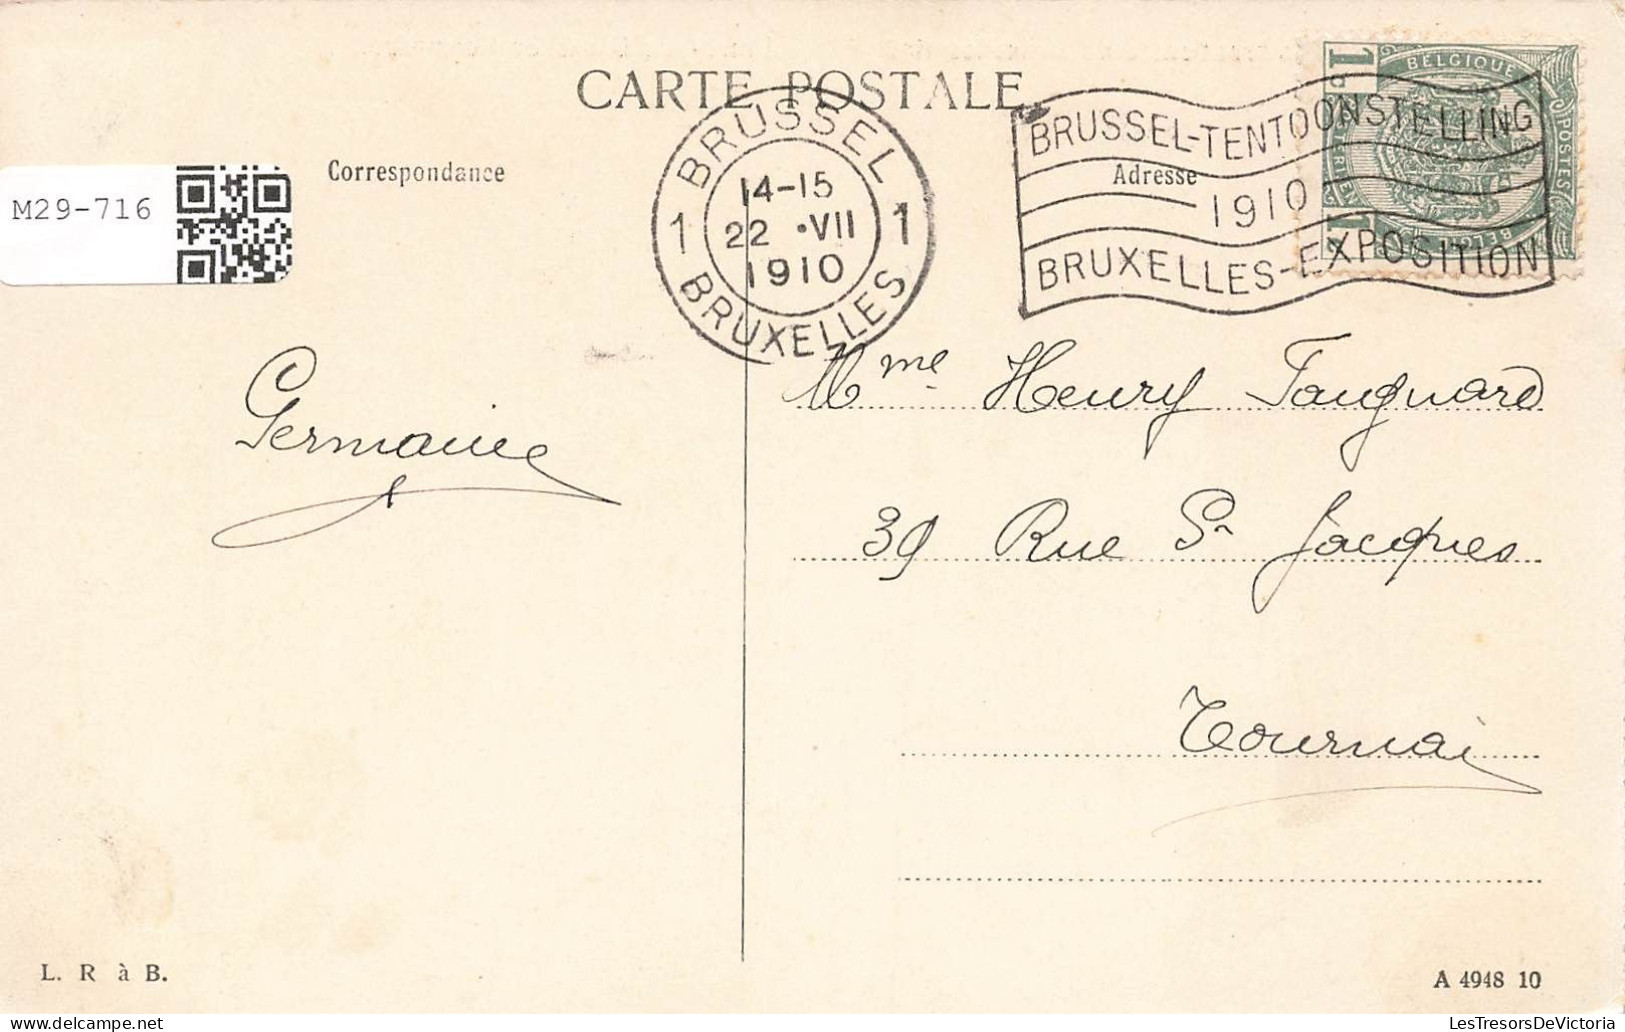 CARTE POSTALE
Correspondance
Adresse
M29-716
BRUSSEL
1 14-15 1
22 •VII
1910
BRUXELLES
BRUSSEL-TENTOONSTELLING
1910
BRUXELLES-EXPOSITION
BELGIQUE
POSTES
BELGIË
1
1
Germaine
Mme Henry Fauquard
39 Rue St Jacques
Tournai
L. R à B.
A 4948 10
LesTresorsDeVictoria